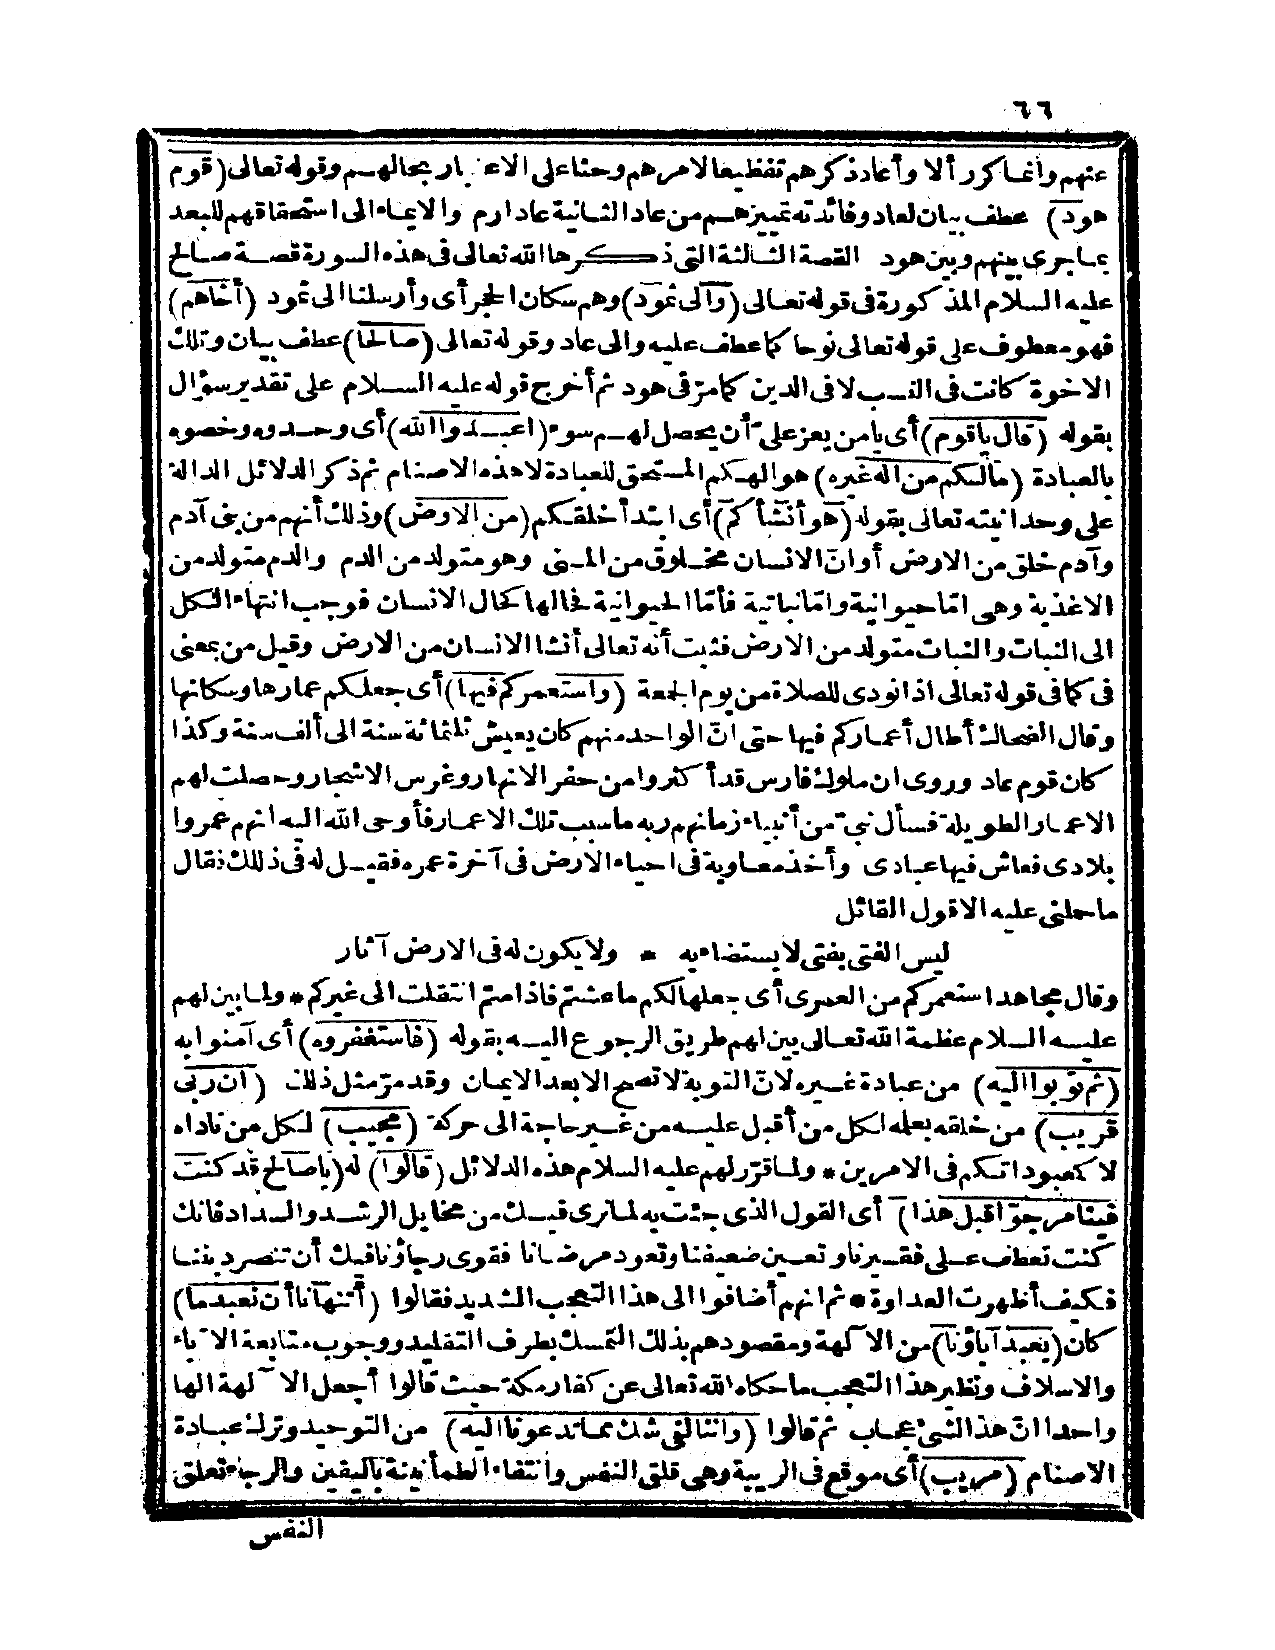 ٦٦
عنهم وانما كرر ألا وأعاد ذكرهم تفظيعا لامرهم وحثا على الاعتبار بحالهم وقوله تعالى (قوم
هود) عطف بيان لعاد وفائدته تمييزهم من عاد الثانية عاد ارم والايماء الى استحقاقهم للبعد
بما جرى بينهم وبين هود القصة الثالثة التى ذكرها الله تعالى فى هذه السورة قصة صالح
عليه السلام المذكورة فى قوله تعالى (والى ثمود) وهم سكان الحجر أى وأرسلنا الى ثمود (أخاهم)
فهو معطوف على قوله تعالى نوحا كما عطف عليه والى عاد وقوله تعالى (صالحا) عطف بيان وتلك
الاخوة كانت فى النسب لا فى الدين كما مرّ فى هود ثم أخرج قوله عليه السلام على تقدير سؤال
بقوله (قال ياقوم) أى يا من يعز علىّ أن يحصل لهم سوء (اعبدوا الله) أى وحدوه وخصوه
بالعبادة (مالكم من اله غيره) هو الهكم المستحق للعبادة لا هذه الاصنام ثم ذكر الدلائل الدالة
على وحدانيته تعالى بقوله (هو أنشأكم) أى ابتدأ خلقكم (من الارض) وذلك أنهم من بنى آدم
وآدم خلق من الارض أو انّ الانسان مخلوق من المنى وهو متولد من الدم والدم متولد من
الاغذية وهى امّا حيوانية وامّا نباتية فأمّا الحيوانية فحالها كحال الانسان فوجب انتهاء الكل
الى النبات والنبات متولد من الارض فثبت أنه تعالى أنشأ الانسان من الارض وقيل من بمعنى
فى كما فى قوله تعالى اذا نودى للصلاة من يوم الجمعة (واستعمركم فيها) أى جعلكم عمارها وسكانها
وقال الضحاك أطال أعماركم فيها حتى انّ الواحد منهم كان يعيش ثلثمائة سنة الى ألف سنة وكذا
كان قوم عاد وروى ان ملوك فارس قد أكثروا من حفر الانهار وغرس الاشجار وحصلت لهم
الاعمار الطويلة فسأل نبىّ من أنبياء زمانهم ربه ما سبب تلك الاعمار فأوحى الله اليه انهم عمروا
بلادى فعاش فيها عبادى وأخذ معاوية فى احياء الارض فى آخرة عمره فقيل له فى ذلك فقال
ما حملنى عليه الا قول القائل
ليس الفتى بفتى لا يستضاء به * ولا يكون له فى الارض آثار
وقال مجاهد استعمركم من العمرى أى جعلها لكم ما عشتم فاذا متم انتقلت الى غيركم * ولما بين لهم
عليه السلام عظمة الله تعالى بين لهم طريق الرجوع اليه بقوله (فاستغفروه) أى آمنوا به
(ثم توبوا اليه) من عبادة غيره لانّ التوبة لا تصح الا بعد الايمان وقد مرّ مثل ذلك (ان ربى
قريب) من خلقه بعلمه لكل من أقبل عليه من غير حاجة الى حركة (مجيب) لكل من ناداه
لا كمعبوداتكم فى الامرين * ولما قرّر لهم عليه السلام هذه الدلائل (قالوا) له (ياصالح قد كنت
فينا مرجوّا قبل هذا) أى القول الذى جئت به لما نرى فيك من مخايل الرشد والسداد فانك
كنت تعطف على فقيرنا وتعين ضعيفنا وتعود مرضانا فقوى رجاؤنا فيك أن تنصر ديننا
فكيف أظهرت العداوة * ثم انهم أضافوا الى هذا التعجب الشديد فقالوا (أتنهانا أن نعبد ما)
كان (يعبد آباؤنا) من الآلهة ومقصودهم بذلك التمسك بطرف التقليد ووجوب متابعة الآباء
والاسلاف ونظير هذا التعجب ما حكاه الله تعالى عن كفار مكة حيث قالوا أجعل الآلهة الها
واحدا انّ هذا لشئ عجاب ثم قالوا (واننا لفى شك مما تدعونا اليه) من التوحيد وترك عبادة
الاصنام (مريب) أى موقع فى الريبة وهى قلق النفس وانتفاء الطمأنينة باليقين والرجاء تعلق
النفس